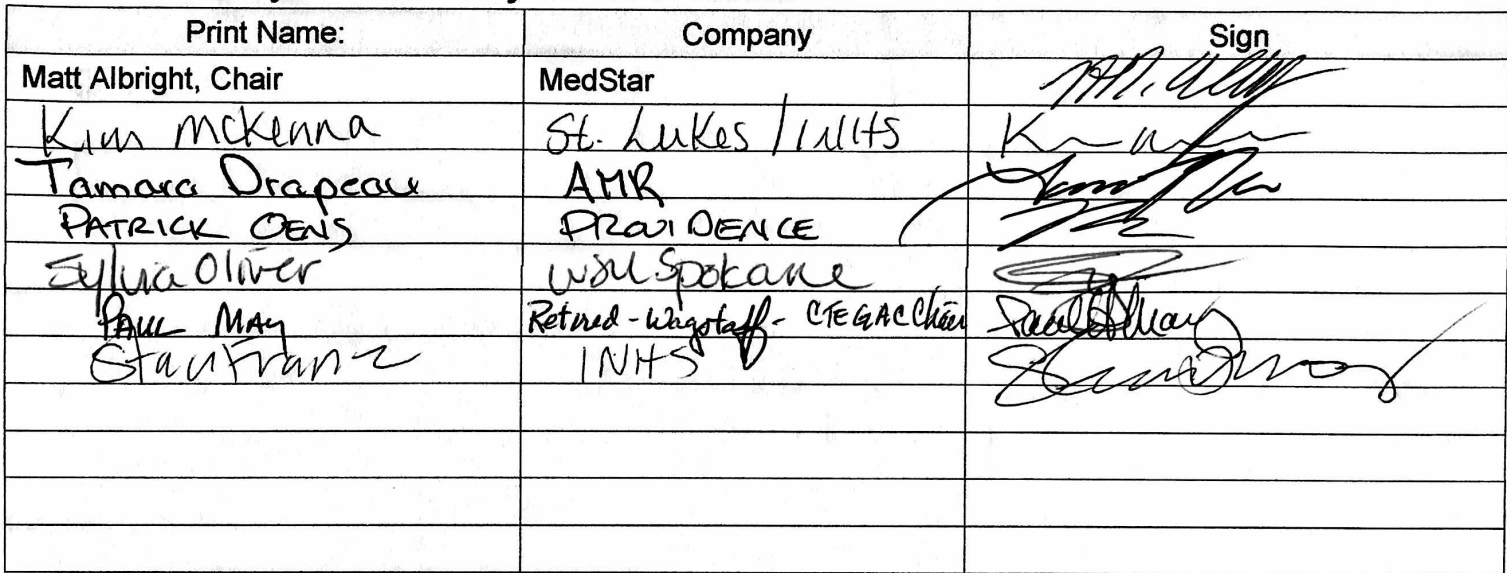 Print Name: Company Sign
Matt Albright, Chair MedStar
Kim McKenna St. Lukes / INHS
Tamara Drapeau AMR
PATRICK OENS PROVIDENCE
Sylvia Oliver WSU Spokane
PAUL MAY Retired - Wagstaff - CTE GAC Chair Paul May
Staci Franz INHS